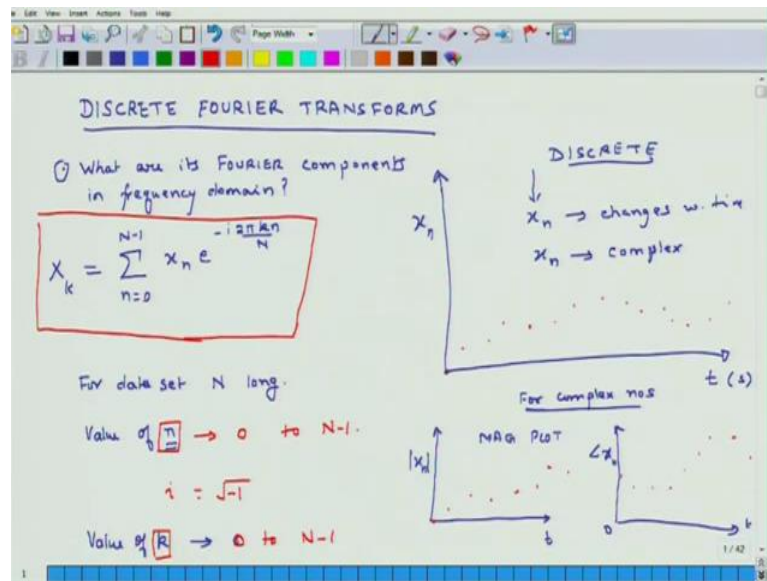 Edit View Insert Actions Tools Help
Page Width
DISCRETE FOURIER TRANSFORMS
What are its FOURIER components
in frequency domain?
X_k = \sum_{n=0}^{N-1} x_n e^{-i 2πkn/N}
For data set N long.
Value of n → 0 to N-1.
i = √-1
Value of k → 0 to N-1
DISCRETE
x_n → changes w. tim
x_n → complex
x_n
t (s)
For complex nos
MAG PLOT
|x_n|
t
∠x_n
0
t
1 / 42
1